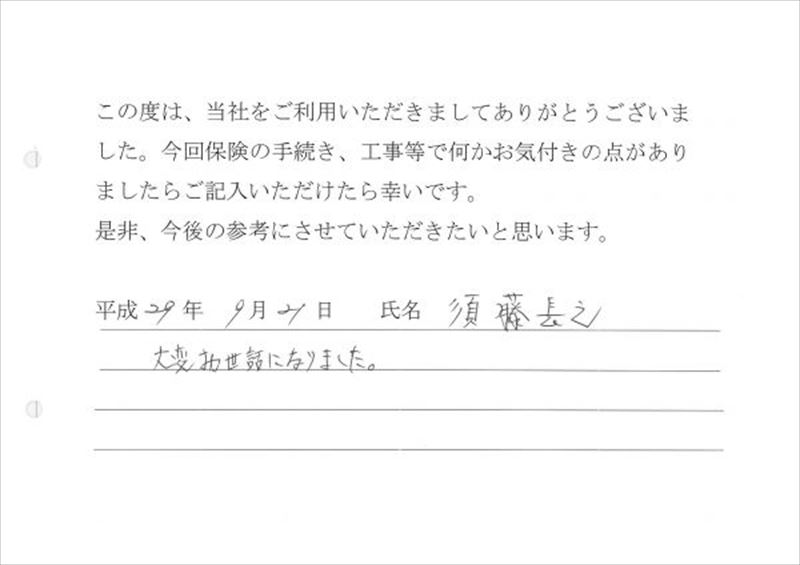 この度は、当社をご利用いただきましてありがとうございま
した。今回保険の手続き、工事等で何かお気付きの点があり
ましたらご記入いただけたら幸いです。
是非、今後の参考にさせていただきたいと思います。
平成29年 9月21日 氏名 須藤長之
大変お世話になりました。